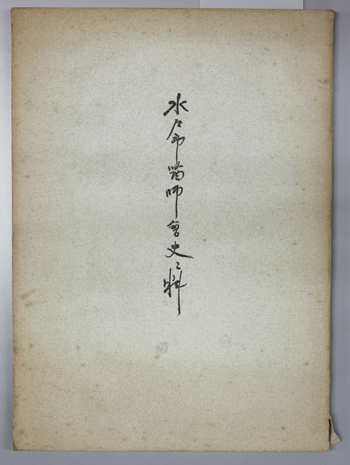 水戸市醫師會史々料